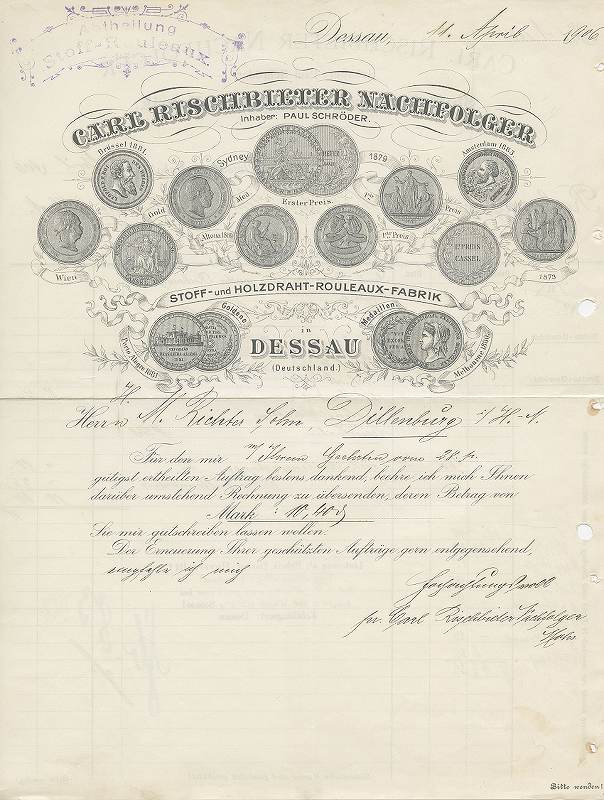 Abtheilung
Stoff-Rouleaux
Dessau, 11. April 1906
CARL RISCHBIETER NACHFOLGER
Inhaber: PAUL SCHRÖDER.
Brüssel 1881.
Sydney 1879
Amsterdam 1883
Gold Med
Erster Preis.
1ter Preis
Altona 1881
1ter Preis
I. PREIS CASSEL
Wien 1873
STOFF- und HOLZDRAHT-ROULEAUX-FABRIK
Goldene Medaillen.
Porto Alegre 1881
Melbourne 1880
in
DESSAU
(Deutschland.)
H.
Herrn M. Richter Sohn, Dillenburg i/H.-N.
Für den mir m/ Ihrem Geehrten vom 28. p.
gütigst ertheilten Auftrag bestens dankend, beehre ich mich Ihnen
darüber umstehend Rechnung zu übersenden, deren Betrag von
Mark: 10,40 ₰
Sie mir gutschreiben lassen wollen.
Der Erneuerung Ihrer geschätzten Aufträge gern entgegensehend,
empfehle ich mich
Hochachtungsvoll
pr. Carl Rischbieter Nachfolger
Bitte wenden!